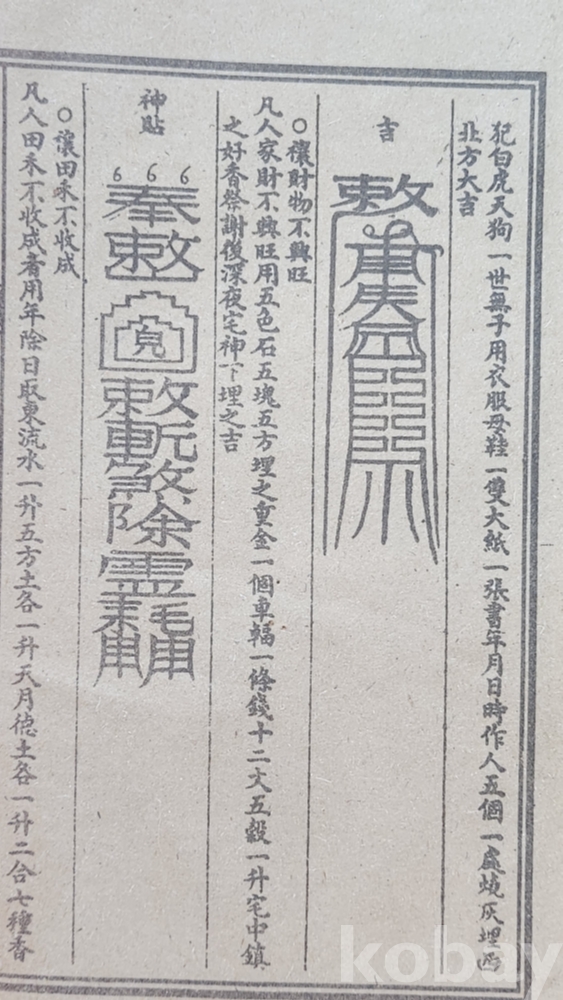 犯白虎天狗一世無子用衣服母鞋一雙大紙一張書年月日時作人五個一處燒灰埋西
北方大吉
吉
敕
○禳財物不興旺
凡人家財不興旺用五色石五塊五方埋之重金一個車輻一條錢十二文五穀一升宅中鎮
之好香祭謝後深夜宅神下埋之吉
神貼
奉敕
敕斬煞除靈耗
○禳田禾不收成
凡人田禾不收成者用年除日取東流水一升五方土各一升天月德土各一升二合七種香
kobay